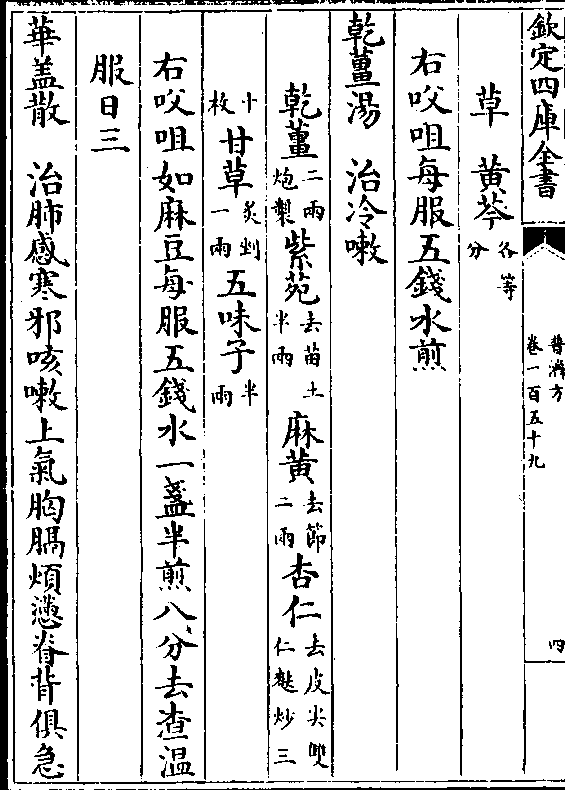 欽定四庫全書
普濟方
卷一百五十九
四
草 黄芩各等分
右㕮咀每服五錢水煎
乾薑湯 治冷嗽
乾薑二兩炮製紫苑去苗土半兩麻黄去節二兩杏仁去皮尖雙仁麩炒三
十枚甘草炙剉一兩五味子半兩
右㕮咀如麻豆每服五錢水一盞半煎八分去渣温
服日三
華盖散 治肺感寒邪咳嗽上氣胸膈煩懣脊背俱急